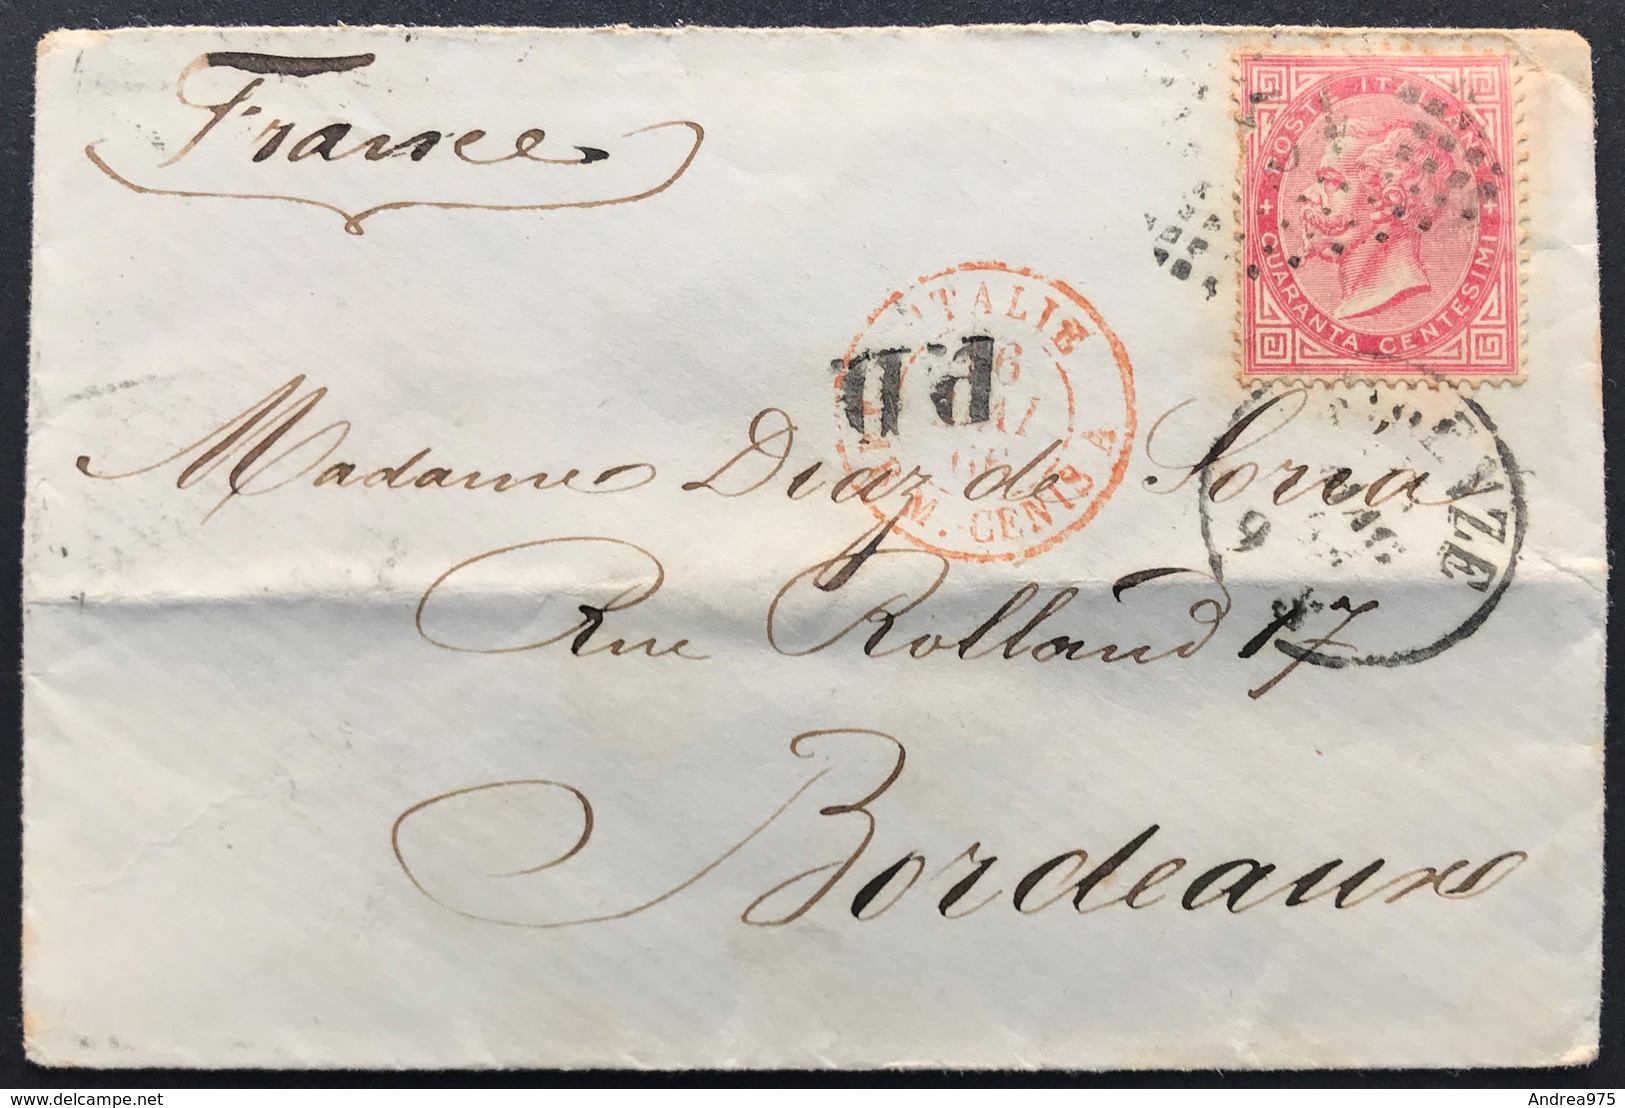 France
POSTE ITALIANE
QUARANTA CENTESIMI
ITALIE
6
MAI
M. CENIS A
P.D.
FIRENZE
6
MAG
Madame Diaz de Soria
Rue Rolland 17
Bordeaux
delcampe.net
Andrea975